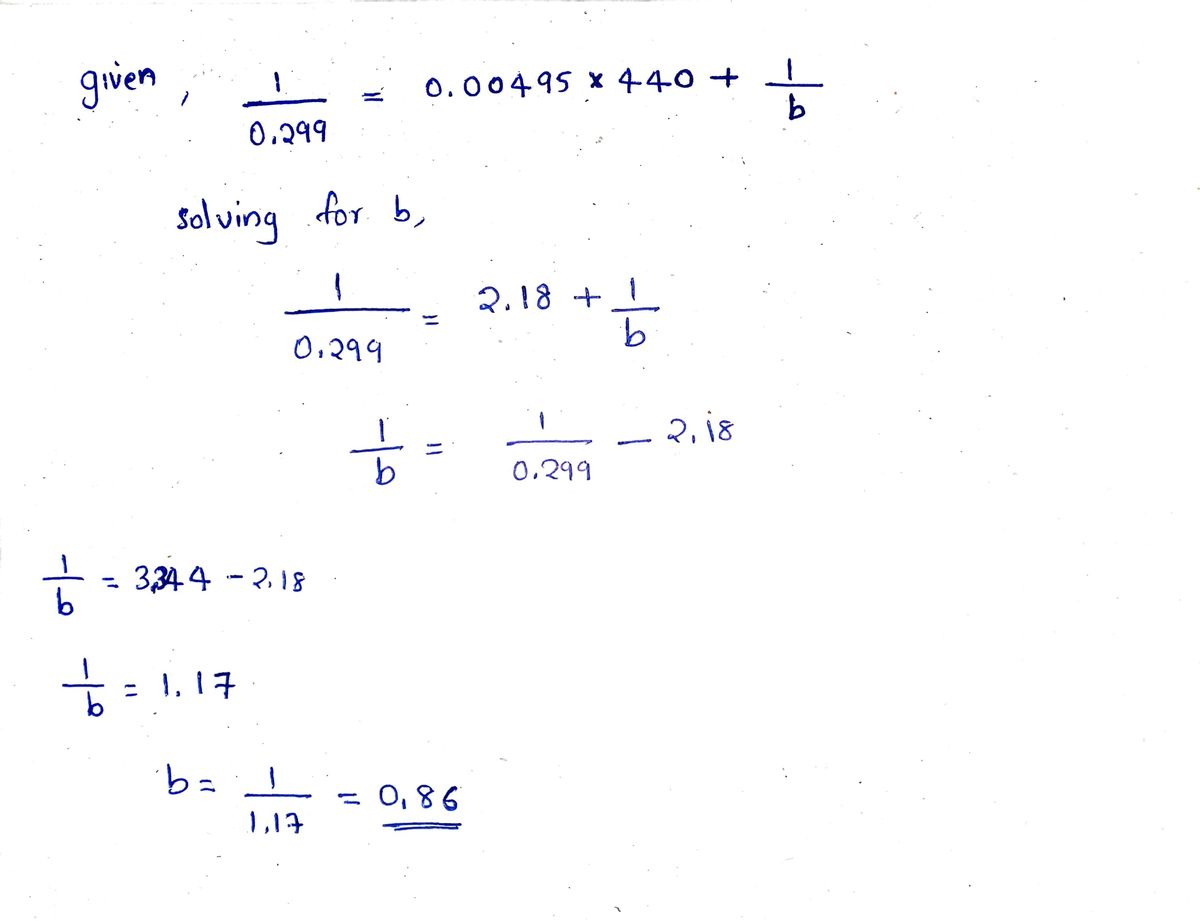 given, 1/0.299 = 0.00495 × 440 + 1/b
solving for b,
1/0.299 = 2.18 + 1/b
1/b = 1/0.299 - 2.18
1/b = 3.344 - 2.18
1/b = 1.17
b = 1/1.17 = 0.86